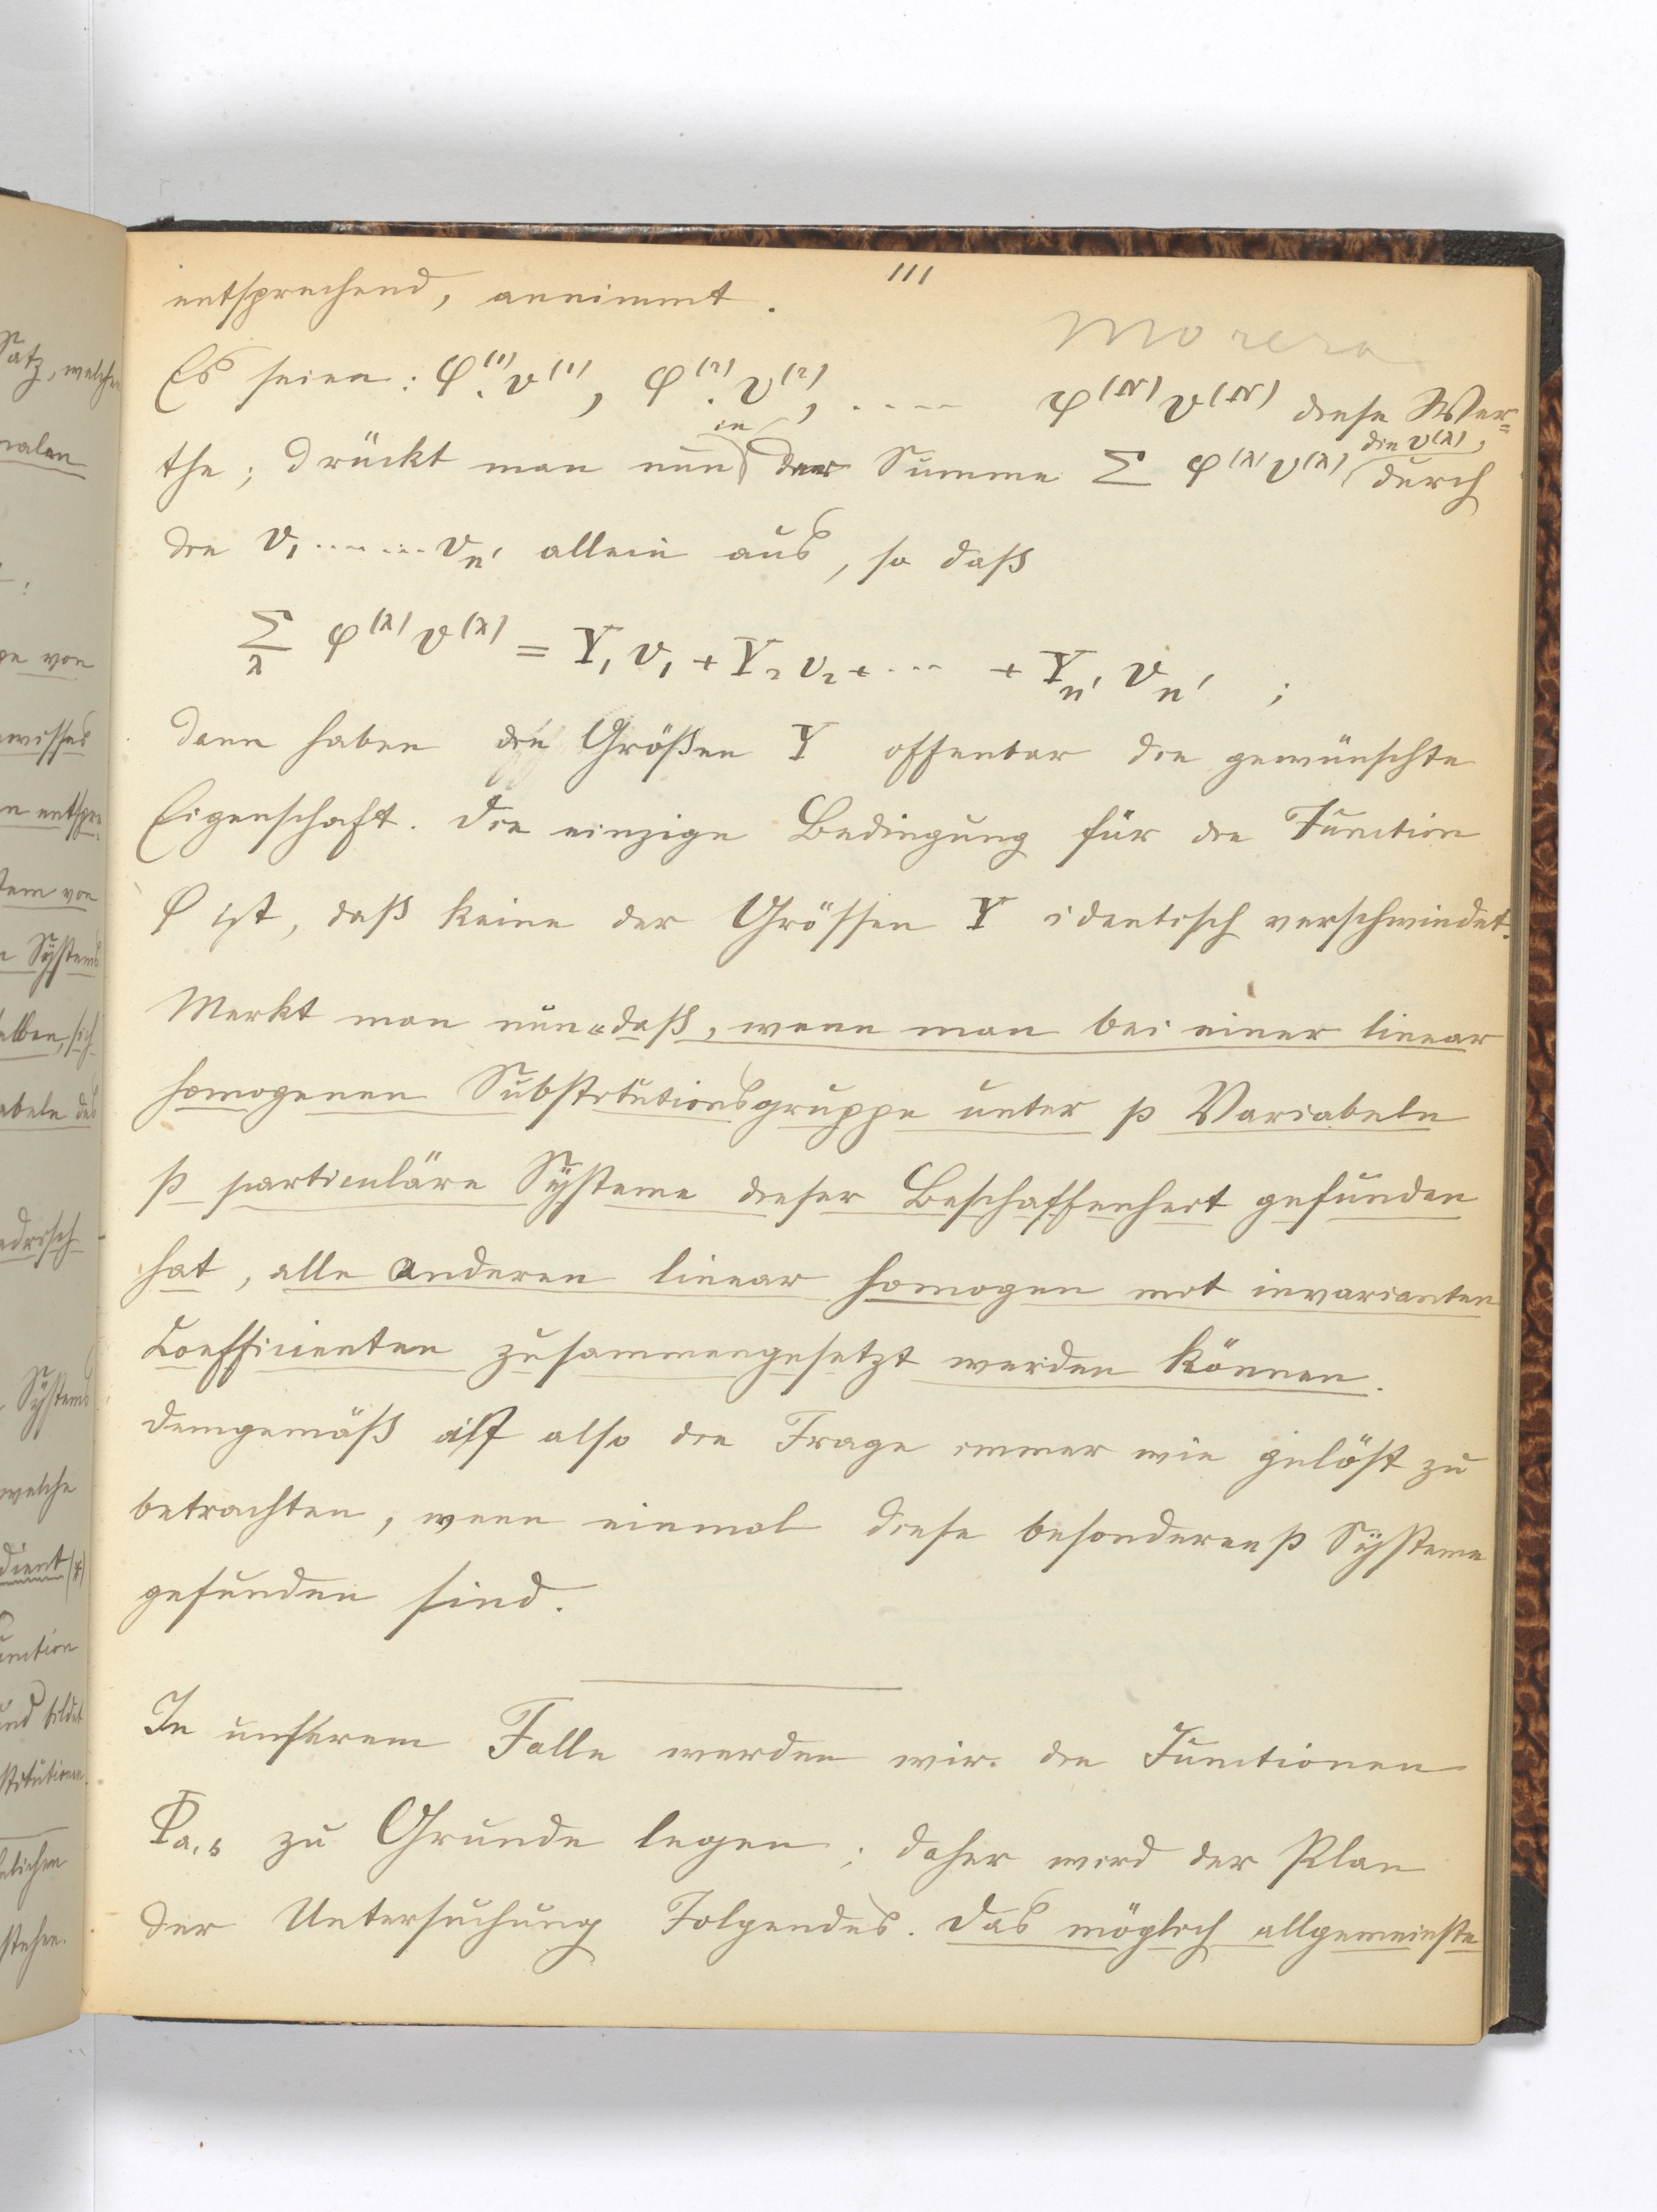 111
entsprechend, annimmt.
Morera
Es seien: φ⁽¹⁾.v⁽¹⁾, φ⁽²⁾.v⁽²⁾, .... φ⁽ᴺ⁾v⁽ᴺ⁾ diese Wer=
in die v⁽λ⁾,
the; drückt man nun der Summe Σ φ⁽λ⁾v⁽λ⁾ durch
die v₁......vₙ' allein aus, so daß
Σ_λ φ⁽λ⁾v⁽λ⁾ = Y₁v₁ + Y₂v₂ + ... + Yₙ'vₙ' ;
dann haben die Größen Y offenbar die gewünschte
Eigenschaft. Die einzige Bedingung für die Function
φ ist, daß keine der Grössen Y identisch verschwindet.
Merkt man nun „daß, wenn man bei einer linear
homogenen Substitutionsgruppe unter p Variabeln
p particuläre Systeme dieser Beschaffenheit gefunden
hat, alle anderen linear homogen mit invarianten
Coefficienten zusammengesetzt werden können.
Demgemäß ist also die Frage immer wie gelöst zu
betrachten, wenn einmal diese besonderen p Systeme
gefunden sind.
In unserem Falle werden wir die Functionen
Φa,s zu Grunde legen; daher wird der Plan
der Untersuchung Folgendes. Das möglich allgemeinste
Satz, welchen
von
Systems
welche
dient (*)
und bildet